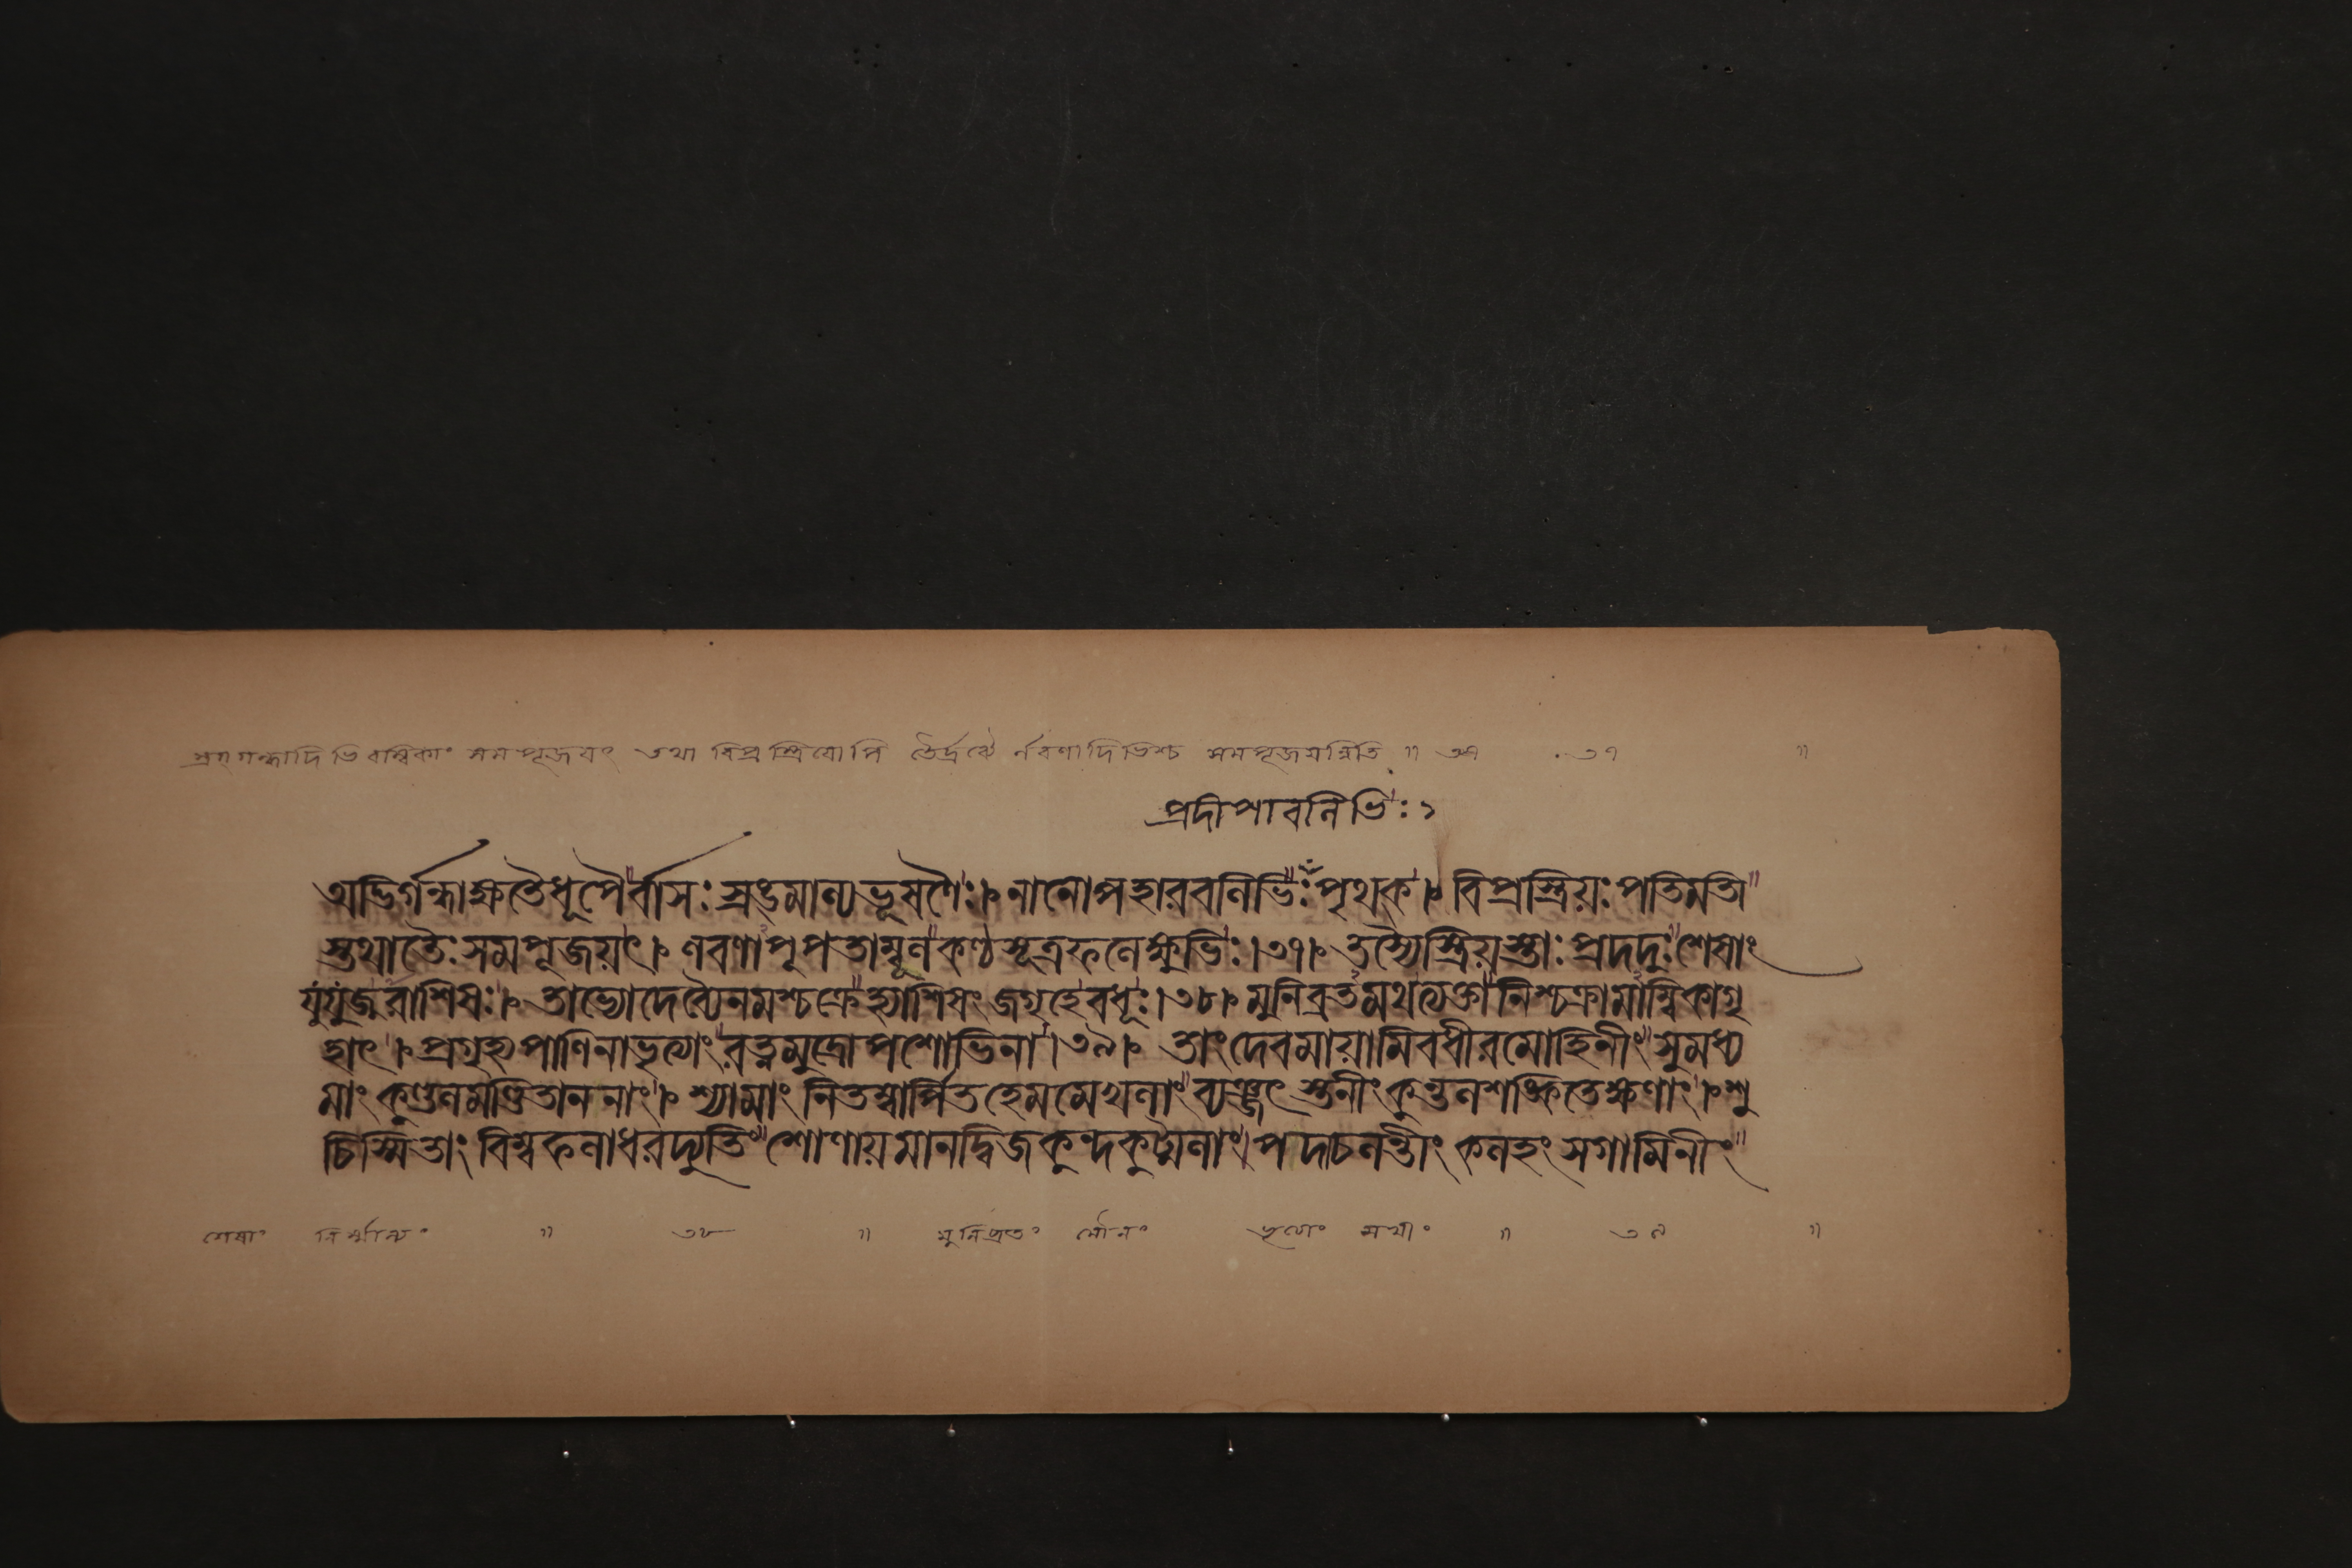 স্রগ্গন্ধাদিভিরম্বিকাং সমপূজয়ৎ তথা বিপ্রস্ত্রিয়োপি তৈর্দ্রব্যৈ র্লবণাদিভিশ্চ সমপূজয়ন্নিতি ॥ ৩৭ ॥
প্রদীপাবলিভিঃ ১
অদ্ভির্গন্ধাক্ষতৈধূপৈর্বাসঃ স্রঙ্‌মাল্যভূষণৈঃ। নানোপহারবলিভিঃ পৃথক্। বিপ্রস্ত্রিয়ঃ পতিমতী
স্তথাতৈঃ সমপূজয়ৎ। লবণাপূপতাম্বূলকণ্ঠসূত্রফলেক্ষুভিঃ।৩৭। তস্যৈস্ত্রিয়স্তাঃ প্রদদুঃ শেষাং
যুযুজুরাশিষঃ। তাভ্যোদেব্যৈনমশ্চক্রে শেষাঞ্চ জগৃহেবধূঃ।৩৮। মুনিব্রতমথত্যক্তা নিশ্চক্রামাম্বিকাগৃ
হাৎ। প্রগৃহ্য পাণিনাভৃত্যাং রত্নমুদ্রোপশোভিনা।৩৯। তাংদেবমায়ামিবধীরমোহিনীং সুমধ্য
মাং কুণ্ডলমণ্ডিতাননাং। শ্যামাং নিতম্বার্পিতহেমমেখলাং ব্যঞ্জৎ স্তনীং কুন্তলশঙ্কিতেক্ষণাং। শু
চিস্মিতাং বিম্বফলাধরদ্যুতি শোণায়মানদ্বিজকুন্দকুট্মলাং। পদাচলন্তীং কলহংসগামিনীং
শেষাং নির্ম্মাল্যং ॥ ৩৮ ॥ মুনিব্রতং মৌনং ভৃত্যাং সখীং ॥ ৩৯ ॥